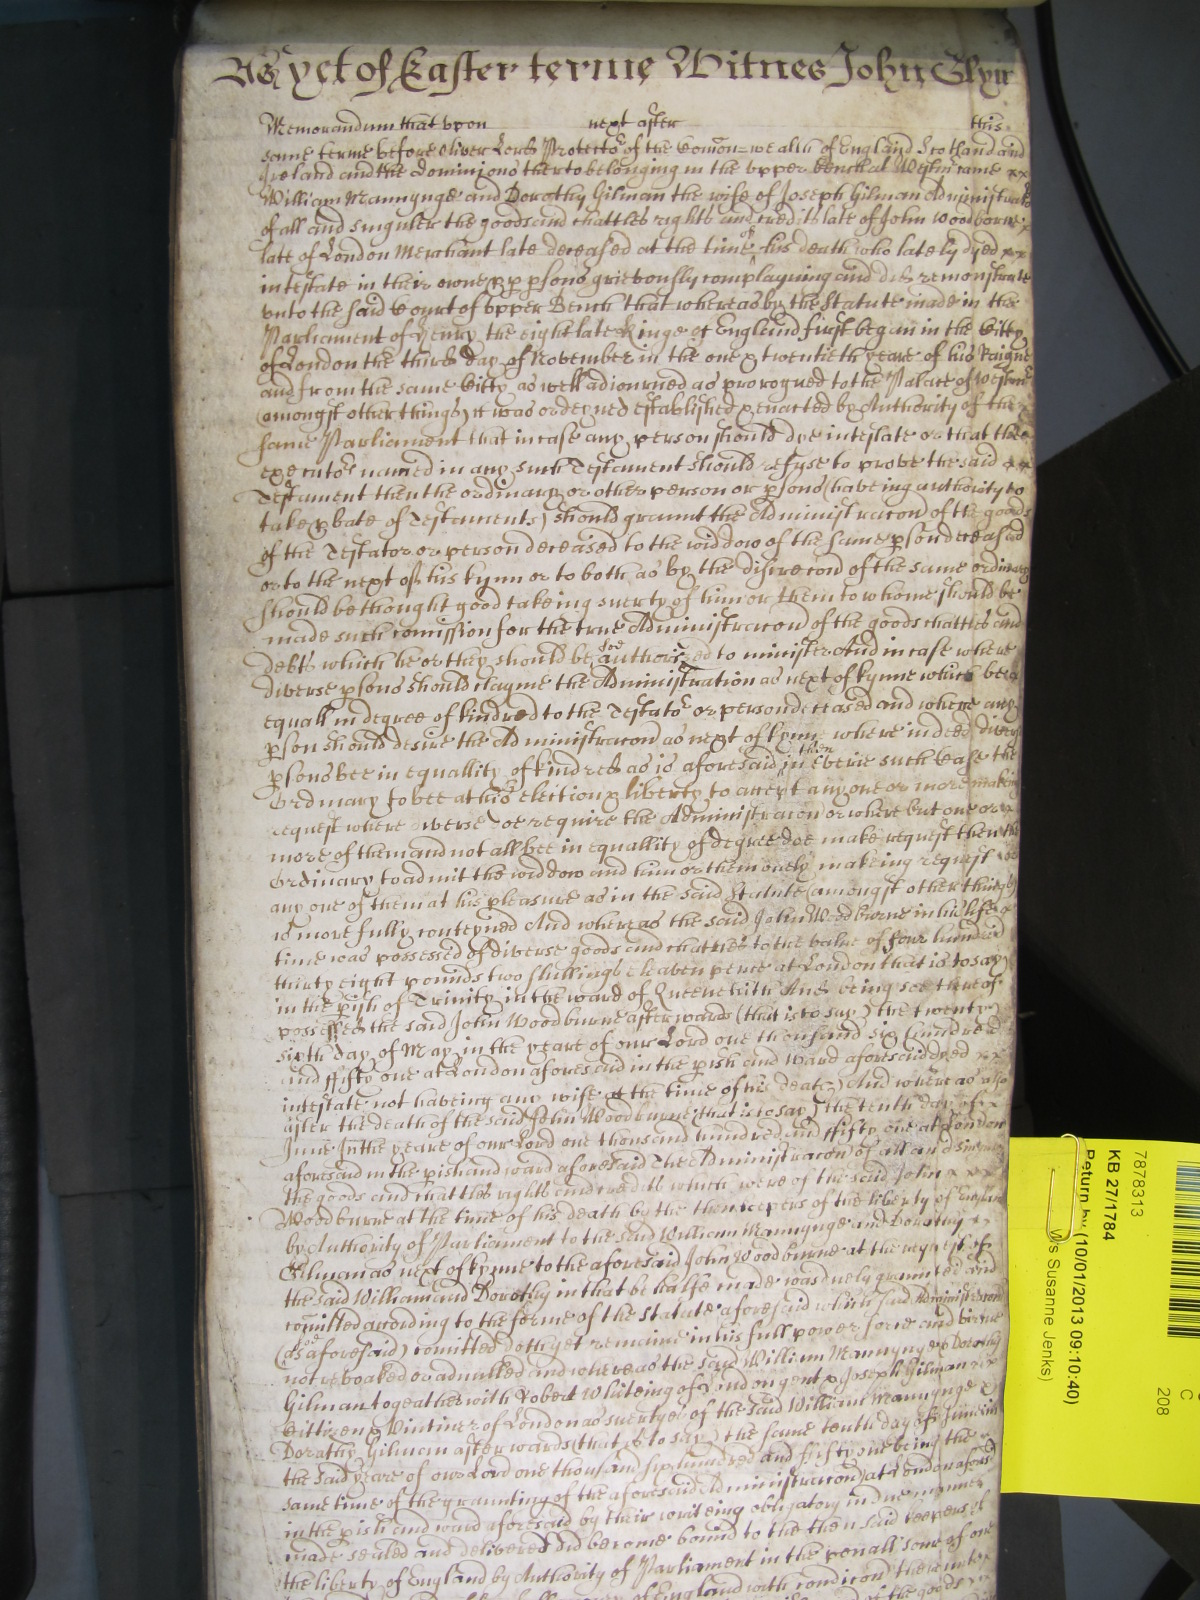 As yet of Easter terme Witnes John Glyn
Memorandum that upon next after this
same terme before Oliver Lord Protector of the Comon wealth of England Scotland and
Ireland and the dominions therto belonging in the upper bench at Westm came
William Mannynge and Dorathy Gilman the wife of Joseph Gilman Administrators
of all and singuler the goods and chattles rights and credits late of John Woodborne
late of London Merchant late deceased at the time of his death who lately dyed
intestate in their owne pp psons grievously complayning and did remonstrate
unto the said Court of upper Bench that whereas by the Statute made in the
Parliament of Henry the eight late Kinge of England first began in the Citty
of London the third day of November in the one & twentieth yeare of his Raigne
and from the same Citty as well adiourned as prorogued to the Palace of Westm
(amongst other things) it was ordeyned established & enacted by Authority of the
same Parliament that in case any person should dye intestate or that the
executors named in any such Testament should refuse to prove the said
Testament then the ordinary or other person or psons (haveing authority to
take pbate of Testaments) should graunt the Administracon of the goods
of the Testator or person deceased to the widdow of the same pson deceased
or to the next of his kynn or to both as by the discrecon of the same ordinary
should be thought good takeing suerty of him or them to whome should be
made such comission for the true Administracon of the goods chattles and
debts which he or they should be soe authorized to minister And in case where
diverse psons should clayme the Administration as next of kynne which bee
equall in degree of kindred to the Testator or person deceased and where any
pson should desire the Administracon as next of kynn where indeed divers
psons bee in equallity of kindred as is aforesaid then in everie such Case the
Ordinary to bee at his election & liberty to accept any one or more making
request where diverse doe require the Administracon or where but one or
more of them and not all bee in equallity of degree doe make request then the
Ordinary to admit the widdow and him or them onely makeing request or
any one of them at his pleasure as in the said Statute (amongst other things)
is more fully conteyned And whereas the said John Woodburne in his life
time was possessed of diverse goods and chattles to the value of four hundred
thirty eight pounds two shillings eleaven pence at London that is to say
in the pish of Trinity in the ward of Queenehith And being soe thereof
possessed the said John Woodburne afterwards (that is to say) the twenty
sixth day of May in the yeare of our Lord one thousand six hundred
and ffifty one at London aforesaid in the pish and ward aforesaid dyed
intestate not haveing any wife at the time of his death And whereas also
after the death of the said John Woodburne (that is to say) the tenth day of
June In the yeare of our Lord one thousand hundred and ffifty one at London
aforesaid in the pish and ward aforesaid The Administracon of all and singuler
the goods and chattles rights and credits which were of the said John
Woodburne at the time of his death by the then keepers of the liberty of England
by Authority of Parliament to the said William Mannynge and Dorathy
Gilman as next of kynne to the aforesaid John Woodburne at the request of
the said William and Dorothy in that behalfe made was duely graunted and
comitted according to the forme of the Statute aforesaid which said Administracon
(as aforesaid) comitted doth yet remaine in his full power force and virtue
not revoaked or adnulled and whereas the said William Mannynge & Dorathy
Gilman togeather with Robert Whiteing of London gent & Joseph Gilman
Cittizen & Vintiner of London as suertyes of the said William Mannynge &
Dorathy Gilman afterwards (that is to say) the same tenth day of June in
the said yeare of our Lord one thousand six hundred and ffifty one being the
same time of the graunting of the aforesaid Administracon at London aforesd
in the pish and ward aforesaid by their writeing obligatory in due manner
made sealed and delivered did become bound to the then said keepers of
the liberty of England by Authority of Parliament in the penall some of one
of England with condicon thereunto
of the goods
7878313
KB 27/1784
Return by (10/01/2013 09:10:40)
Ms Susanne Jenks)
C
208